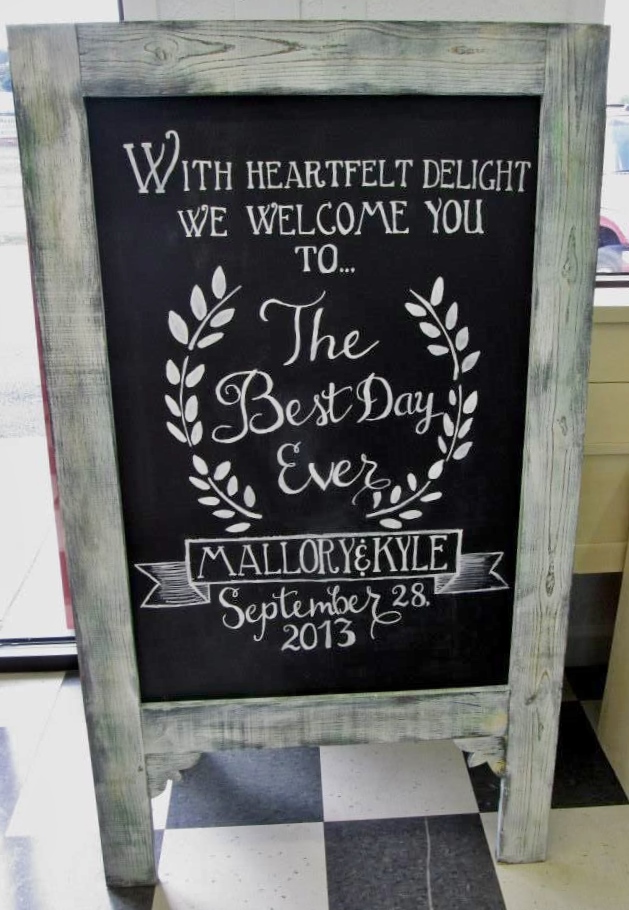 WITH HEARTFELT DELIGHT
WE WELCOME YOU
TO...
The
Best Day
Ever
MALLORY & KYLE
September 28,
2013